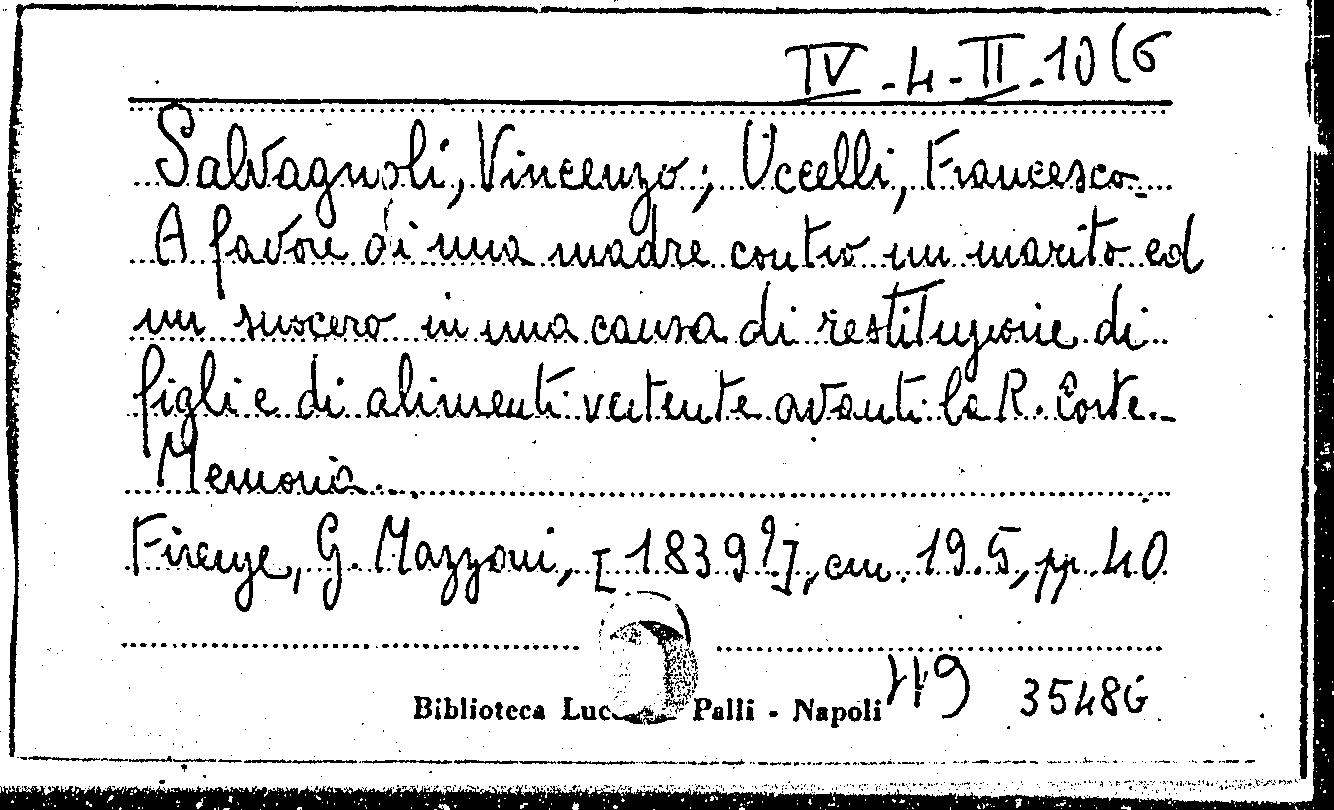 IV-4-II-10(6
Salvagnoli, Vincenzo; Uccelli, Francesco
A favore di una madre contro un marito ed
un suocero in una causa di restituzione di
figli e di alimenti vertente avanti la R. Corte.
Memoria.
Firenze, G. Mazzoni, [1839?], cm. 19.5, pp. 40
Biblioteca Palli - Napoli 35486